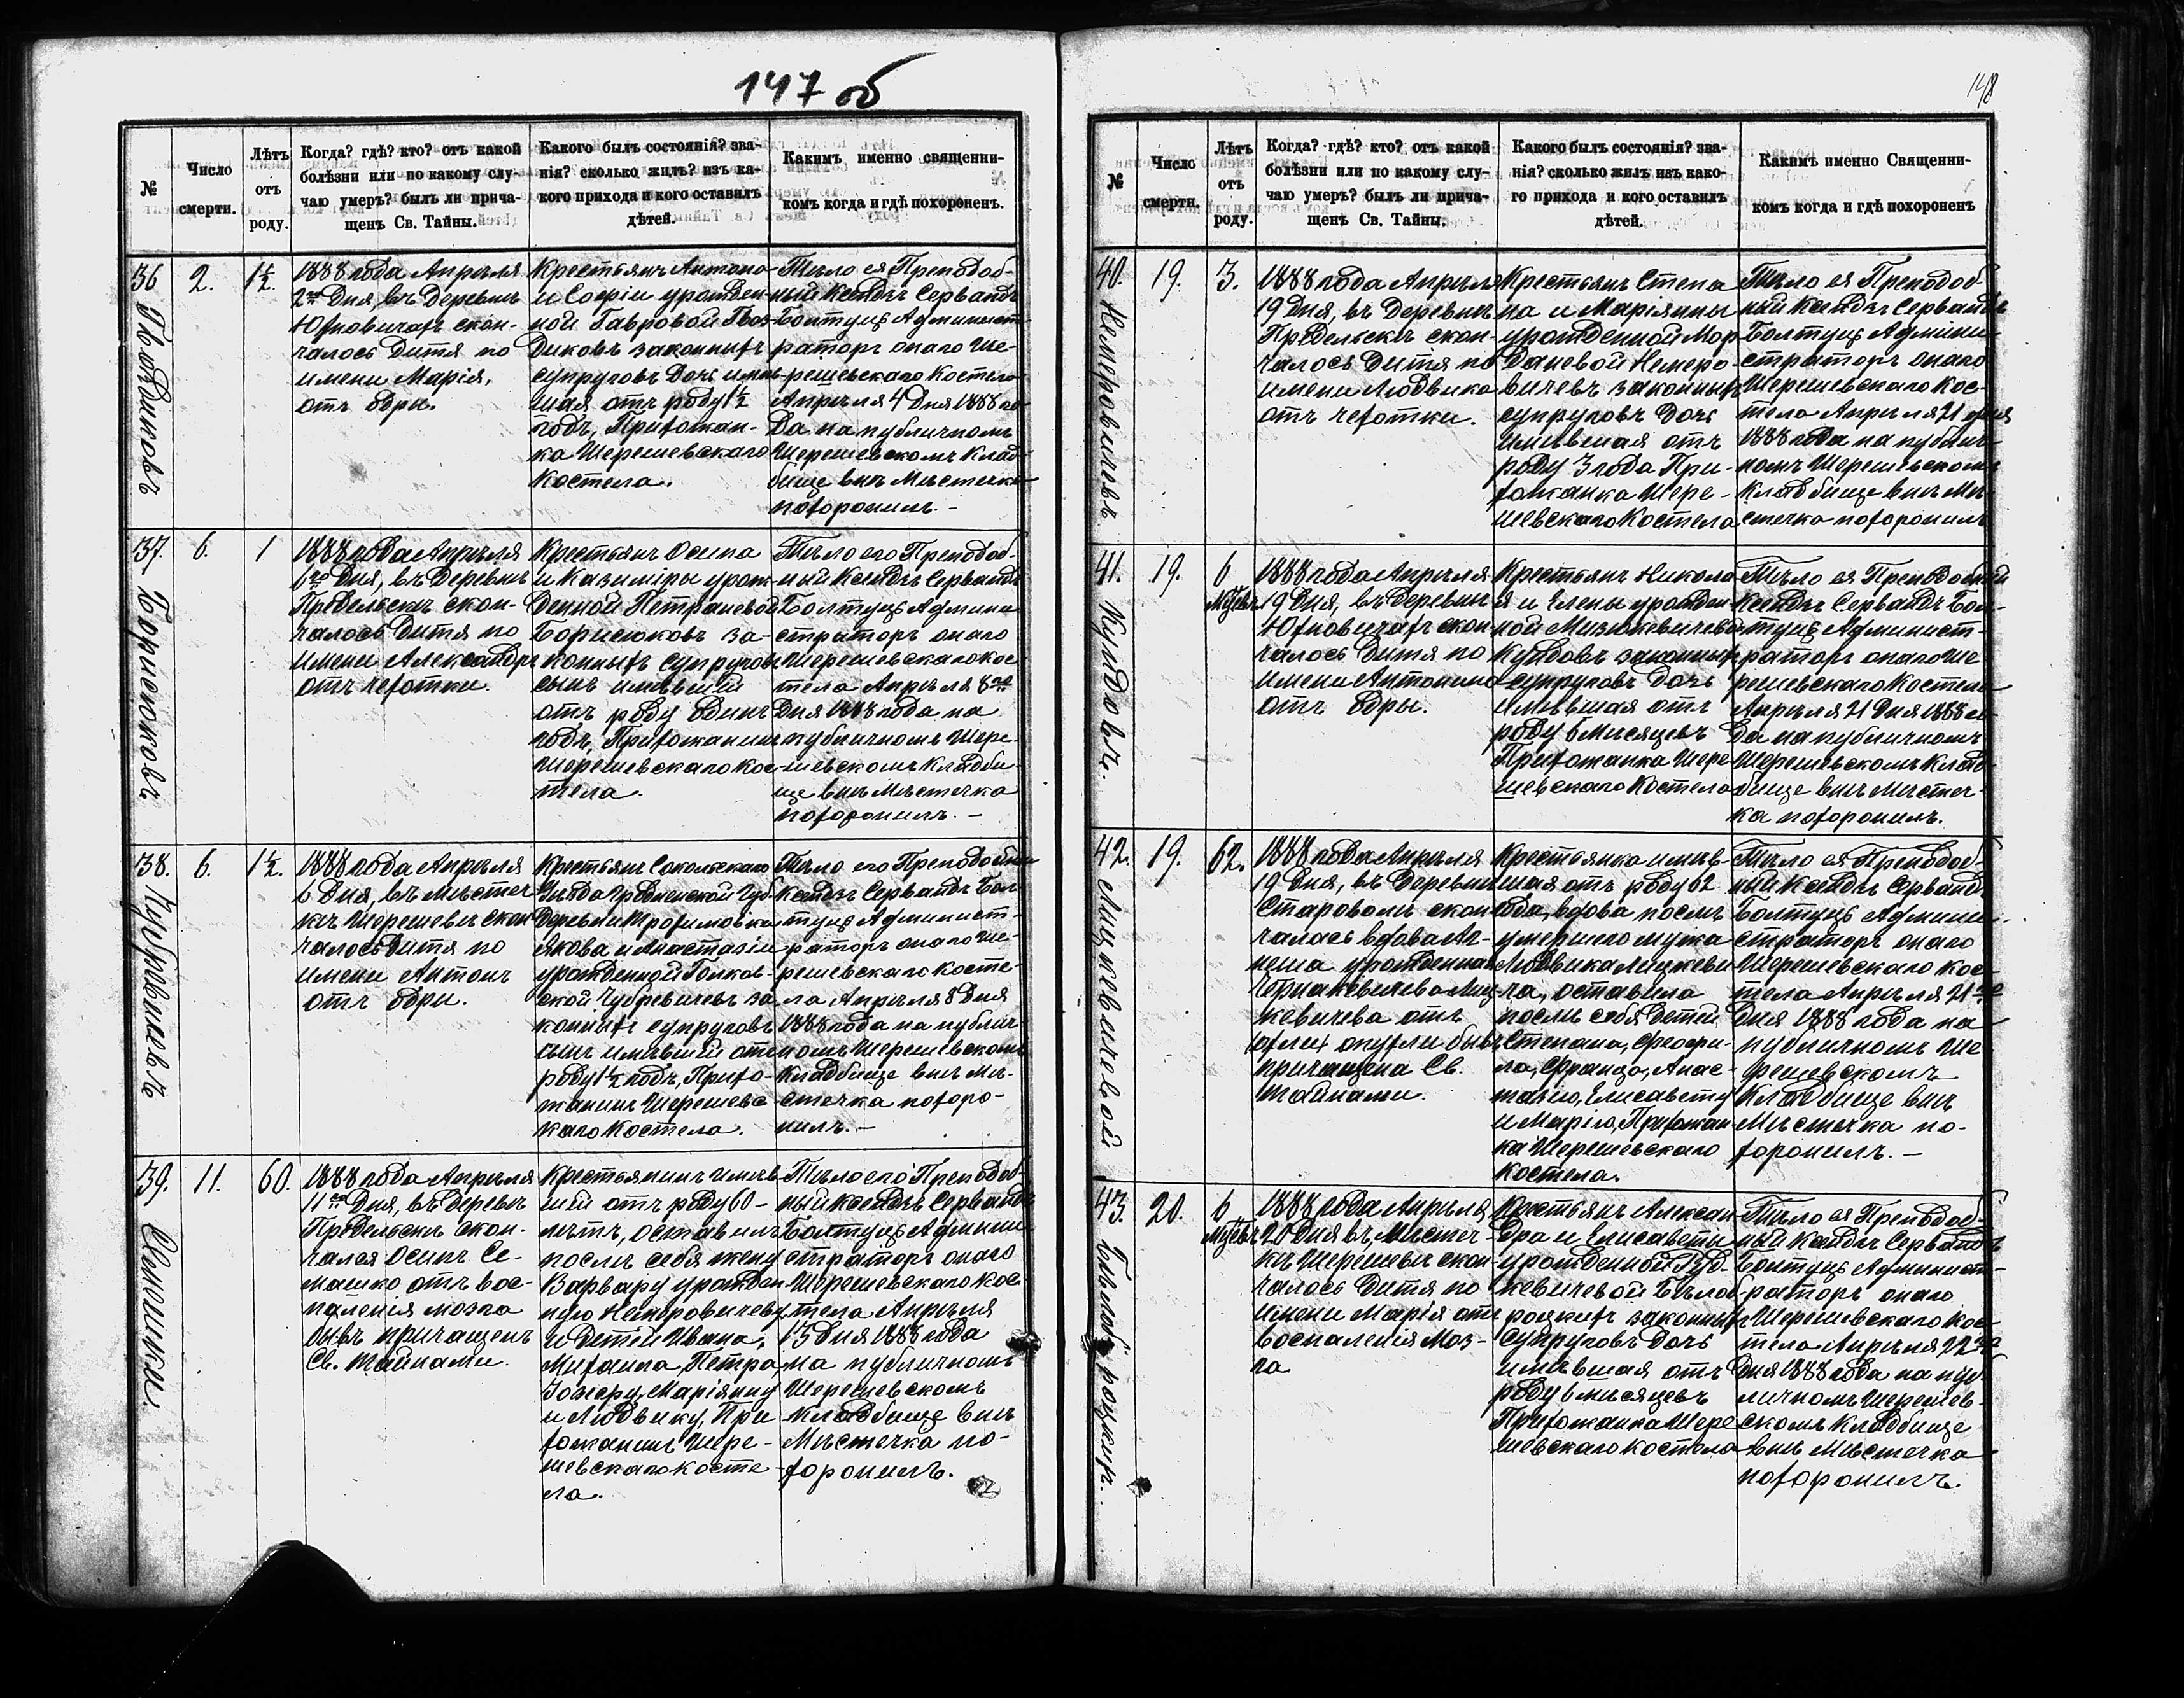 147 об
№
Число
смерти.
Лѣтъ
отъ
роду.
Когда? гдѣ? кто? отъ какой
болѣзни или по какому слу-
чаю умеръ? былъ ли прича-
щенъ Св. Тайны.
Какого былъ состоянія? зва-
нія? сколько жилъ? изъ ка-
кого прихода и кого оставилъ
дѣтей.
Какимъ именно священни-
комъ когда и гдѣ похороненъ.
36
Гвоздиковъ
2.
1½.
1888 года Апрѣля
2го Дня, въ Деревнѣ
Юхновичахъ скон-
чалось Дитя по
имени Марія,
отъ одры.
Крестьянъ Антона
и Софіи урожден-
ной Гавровой Гвоз-
диковъ законныхъ
супруговъ Дочь имѣв-
шая отъ роду 1½
годъ, Прихожан-
ка Шерешевскаго
Костела.
Тѣло ея Преподоб-
ный Ксендзъ Сервандъ
Болтуць Админист-
раторъ онаго Ше-
решевскаго Костела
Апрѣля 4 Дня 1888 го-
да на публичномъ
Шерешевскомъ Клад-
бище внѣ Мѣстечка
похоронилъ. -
37.
Борисюковъ
6.
1
1888 года Апрѣля
6го Дня, въ Деревнѣ
Предельскъ скон-
чалось Дитя по
имени Александръ
отъ чехотки.
Крестьянъ Осипа
и Казиміры урож-
денной Петраневой
Борисюковъ за-
конныхъ супруговъ
сынъ имѣвшій
отъ роду одинъ
годъ, Прихожанинъ
Шерешевскаго Кос-
тела.
Тѣло его Преподоб-
ный Ксендзъ Сервандъ
Болтуць Админи-
страторъ онаго
Шерешевскаго Кос-
тела Апрѣля 8го
Дня 1888 года на
публичномъ Шере-
шевскомъ Кладби-
ще внѣ Мѣстечка
похоронилъ. -
38.
Чубревичевъ
6.
1½.
1888 года Апрѣля
6 Дня, въ Мѣстеч-
кѣ Шерешевѣ скон-
чалось Дитя по
имени Антонъ
отъ одры.
Крестьянъ Сокольскаго
Уѣзда Гродненской Губ.
Деревни Трофимовка
Якова и Анастазіи
урожденной Голков-
ской Чубревичевъ за-
конныхъ супруговъ
сынъ имѣвшій отъ
роду 1½ годъ, Прихо-
жанинъ Шерешевс-
каго Костела.
Тѣло его Преподобный
Ксендзъ Сервандъ Бол-
туць Админист-
раторъ онаго Ше-
решевскаго Косте-
ла Апрѣля 8 Дня
1888 года на публич-
номъ Шерешевскомъ
Кладбище внѣ Мѣ-
стечка похоро-
нилъ. -
39.
Семашки.
11.
60.
1888 года Апрѣля
11го Дня, въ Деревнѣ
Предельскъ скон-
чался Осипъ Се-
машко отъ вос-
паленія мозга
бывъ причащенъ
Св. Тайнами.
Крестьянинъ имѣв-
шій отъ роду 60-
лѣтъ, оставилъ
послѣ себя жену
Варвару урожден-
ную Немеровичеву
и Дѣтей Ивана,
Михаила, Петра,
Іозефу, Маріянну
и Людвику, При-
хожанинъ Шере-
шевскаго Косте-
ла.
Тѣло его Преподоб-
ный Ксендзъ Сервандъ
Болтуць Админи-
страторъ онаго
Шерешевскаго Кос-
тела Апрѣля
13 Дня 1888 года
на публичномъ
Шерешевскомъ
Кладбище внѣ
Мѣстечка по-
хоронилъ.
148
№
Число
смерти.
Лѣтъ
отъ
роду.
Когда? гдѣ? кто? отъ какой
болѣзни или по какому слу-
чаю умеръ? былъ ли прича-
щенъ Св. Тайны.
Какого былъ состоянія? зва-
нія? сколько жилъ изъ како-
го прихода и кого оставилъ
дѣтей.
Какимъ именно Священни-
комъ когда и гдѣ похороненъ
40.
Немеровичевъ
19.
3.
1888 года Апрѣля
19 Дня, въ Деревнѣ
Предельскъ скон-
чалось Дитя по
имени Людвика
отъ чехотки.
Крестьянъ Степа-
на и Маріянны
урожденной Мор-
даневой Немеро-
вичевъ законныхъ
супруговъ Дочь
имѣвшая отъ
роду 3 года При-
хожанка Шере-
шевскаго Костела
Тѣло ея Преподоб-
ный Ксендзъ Сервандъ
Болтуць Админи-
страторъ онаго
Шерешевскаго Кос-
тела Апрѣля 21 дня
1888 года на публич-
номъ Шерешевскомъ
Кладбище внѣ Мѣ-
стечка похоронилъ
41.
Кундовъ.
19.
6
Мѣсвъ
1888 года Апрѣля
19 Дня, въ Деревнѣ
Юхновичахъ скон-
чалось Дитя по
имени Антонина
отъ одры.
Крестьянъ Никола-
я и Елены урожден-
ной Мизюкевичевой
Кундовъ законныхъ
супруговъ Дочь
имѣвшая отъ
роду 6 Мѣсяцевъ
Прихожанка Шере-
шевскаго Костела
Тѣло ея Преподобный
Ксендзъ Сервандъ Бол-
туць Админист-
раторъ онаго Ше-
решевскаго Костела
Апрѣля 21 Дня 1888 го-
да на публичномъ
Шерешевскомъ Клад-
бище внѣ Мѣстеч-
ка похоронилъ.
42.
Лицкевичевой
19.
62.
1888 года Апрѣля
19 Дня, въ Деревнѣ
Староволѣ скон-
чалась вдова Аг-
неша урожденная
Чернакевичева Лиц-
кевичева отъ
опухли бывъ
причащена Св.
Тайнами.
Крестьянка имѣв-
шая отъ роду 62
года, вдова послѣ
умершаго мужа
Людвика Лицкеви-
ча, оставила
послѣ себя Дѣтей
Степана, Феофи-
ла, Франца, Анас-
тазію, Елисавету
и Марію, Прихожан-
ка Шерешевскаго
костела.
Тѣло ея Преподоб-
ный Ксендзъ Сервандъ
Болтуць Админи-
страторъ онаго
Шерешевскаго Кос-
тела Апрѣля 21го
Дня 1888 года на
публичномъ Ше-
решевскомъ
Кладбище внѣ
Мѣстечка по-
хоронилъ. -
43.
Бѣлобродскихъ.
20.
6
Мѣсвъ
1888 года Апрѣля
20 Дня въ Мѣстеч-
кѣ Шерешевѣ скон-
чалось Дитя по
имени Марія отъ
воспаленія Моз-
га
Крестьянъ Алексан-
дра и Елисаветы
урожденной Руд-
кевичевой Бѣлоб-
родскихъ законныхъ
супруговъ Дочь
имѣвшая отъ
роду 6 мѣсяцевъ
Прихожанка Шере-
шевскаго костела
Тѣло ея Преподоб-
ный Ксендзъ Сервандъ
Болтуць Админист-
раторъ онаго
Шерешевскаго Кос-
тела Апрѣля 22го
Дня 1888 года на пуб-
личномъ Шерешев-
скомъ Кладбище
внѣ Мѣстечка
похоронилъ.